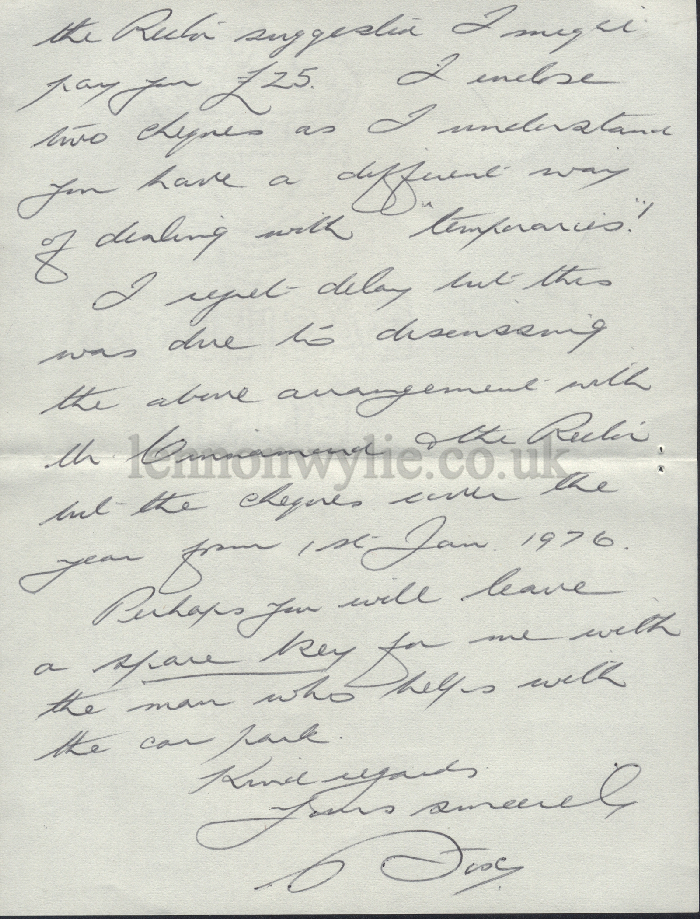 the Rector suggested I might
pay you £25. I enclose
two cheques as I understand
you have a different way
of dealing with "temporaries"!
I regret delay but this
was due to discussing
the above arrangement with
Mr. & the Rector
lennonwylie.co.uk
but the cheques cover the
year from 1st Jan 1976.
Perhaps you will leave
a spare key for me with
the man who helps with
the car park.
Kind regards
Yours sincerely